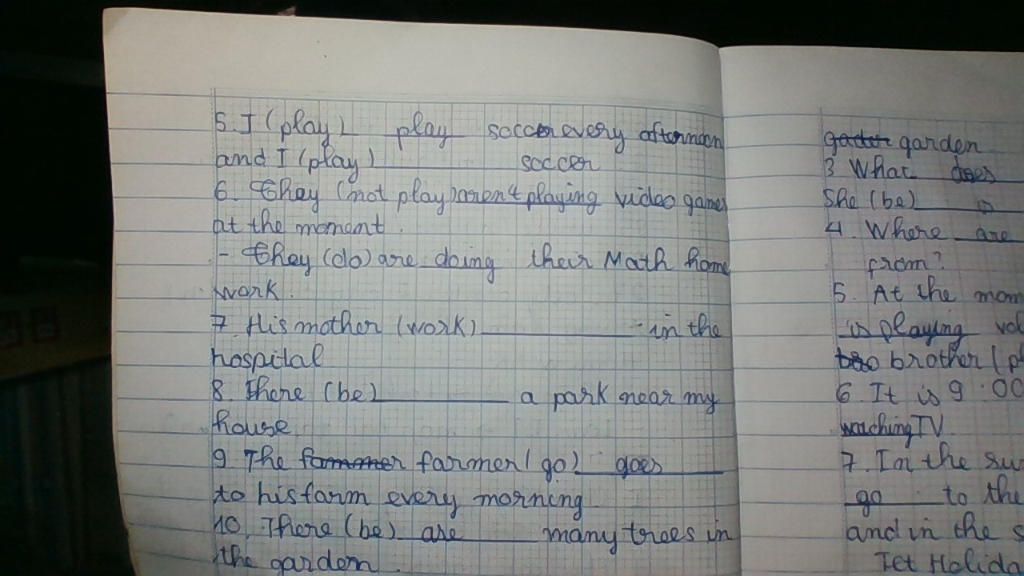 5. I (play) play soccer every afternoon
and I (play) ________ soccer
6. They (not play) aren't playing video games
at the moment.
- They (do) are doing their Math home
work.
7. His mother (work) ________ in the
hospital
8. There (be) ________ a park near my
house
9. The farmer (go) goes
to his farm every morning
10. There (be) are many trees in
the garden.
garden
3 What does
She (be) is
4. Where are
from?
5. At the mom
is playing vol
brother (pl
6. It is 9:00
watching TV.
7. In the su
go to the
and in the s